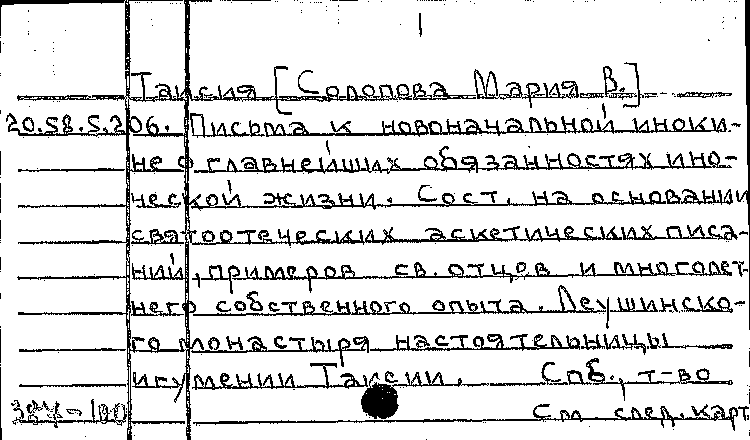 1
Таисия [Солопова Мария В.]
20.58.5.206. Письма к новоначальной иноки-
не о главнейших обязанностях ино-
ческой жизни. Сост. на основании
святоотеческих аскетических писа-
ний, примеров св. отцев и многолет-
него собственного опыта. Леушинско-
го монастыря настоятельницы
игумении Таисии. Спб., т-во
См. след. карт